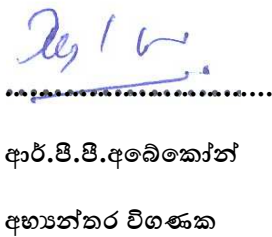 ආර්.පී.පී.අබේකෝන්
අභ්‍යන්තර විගණක